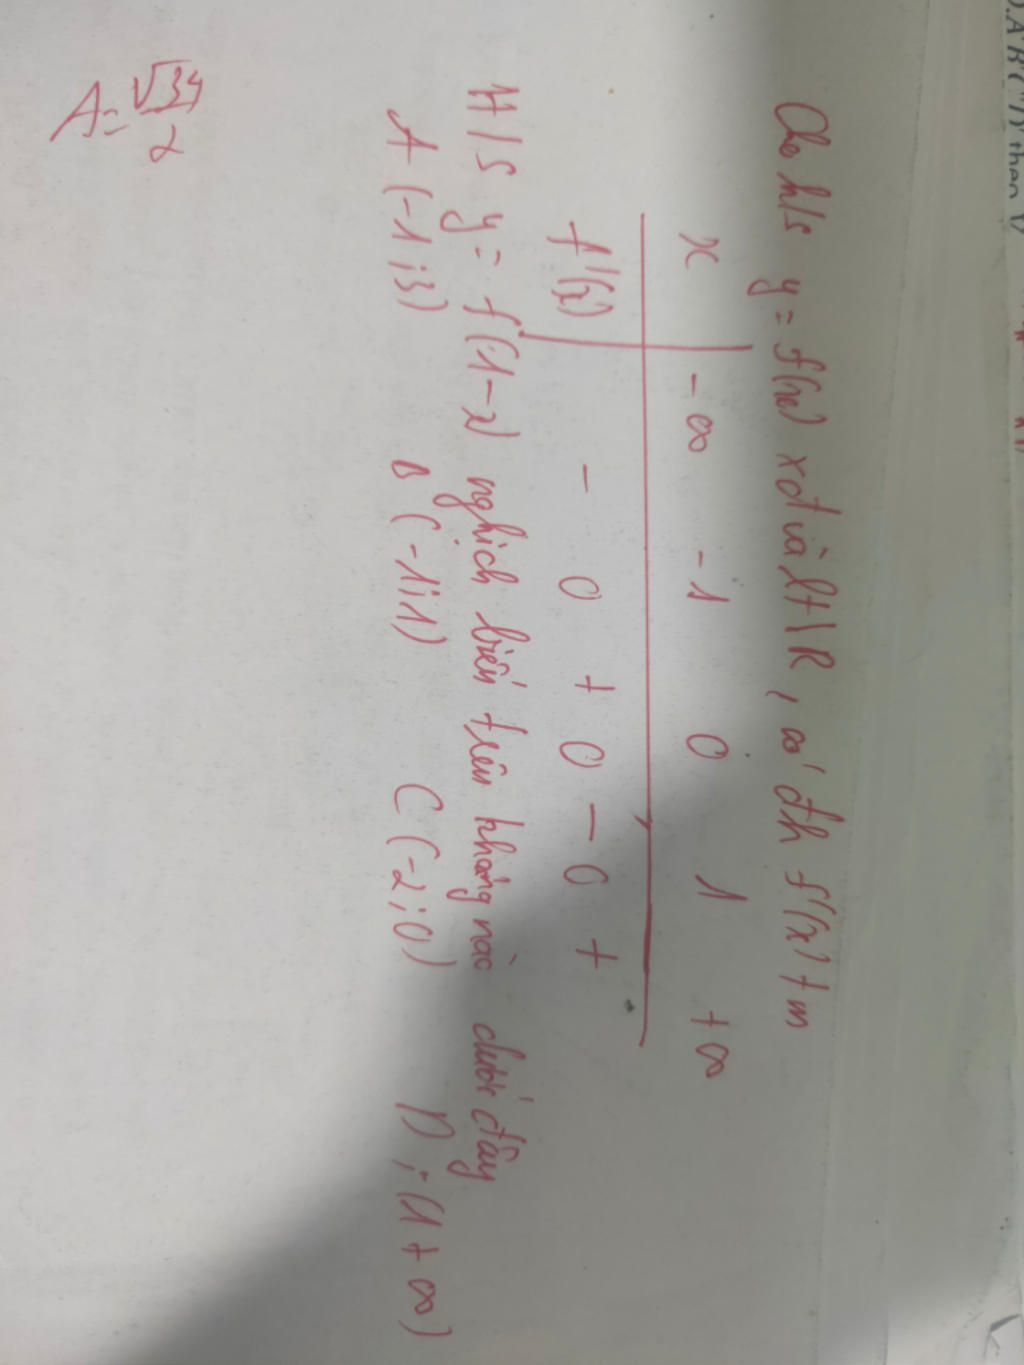 Cho h/s y = f(x) xđ và lt IR, có đh f'(x) t m
x -∞ -1 0 1 +∞
f'(x) - 0 + 0 - 0 +
H/S y = f(1-x) nghịch biến trên khoảng nào dưới đây
A (-1;3) B (-1;1) C (-2;0) D; (1+∞)
A = √34/2